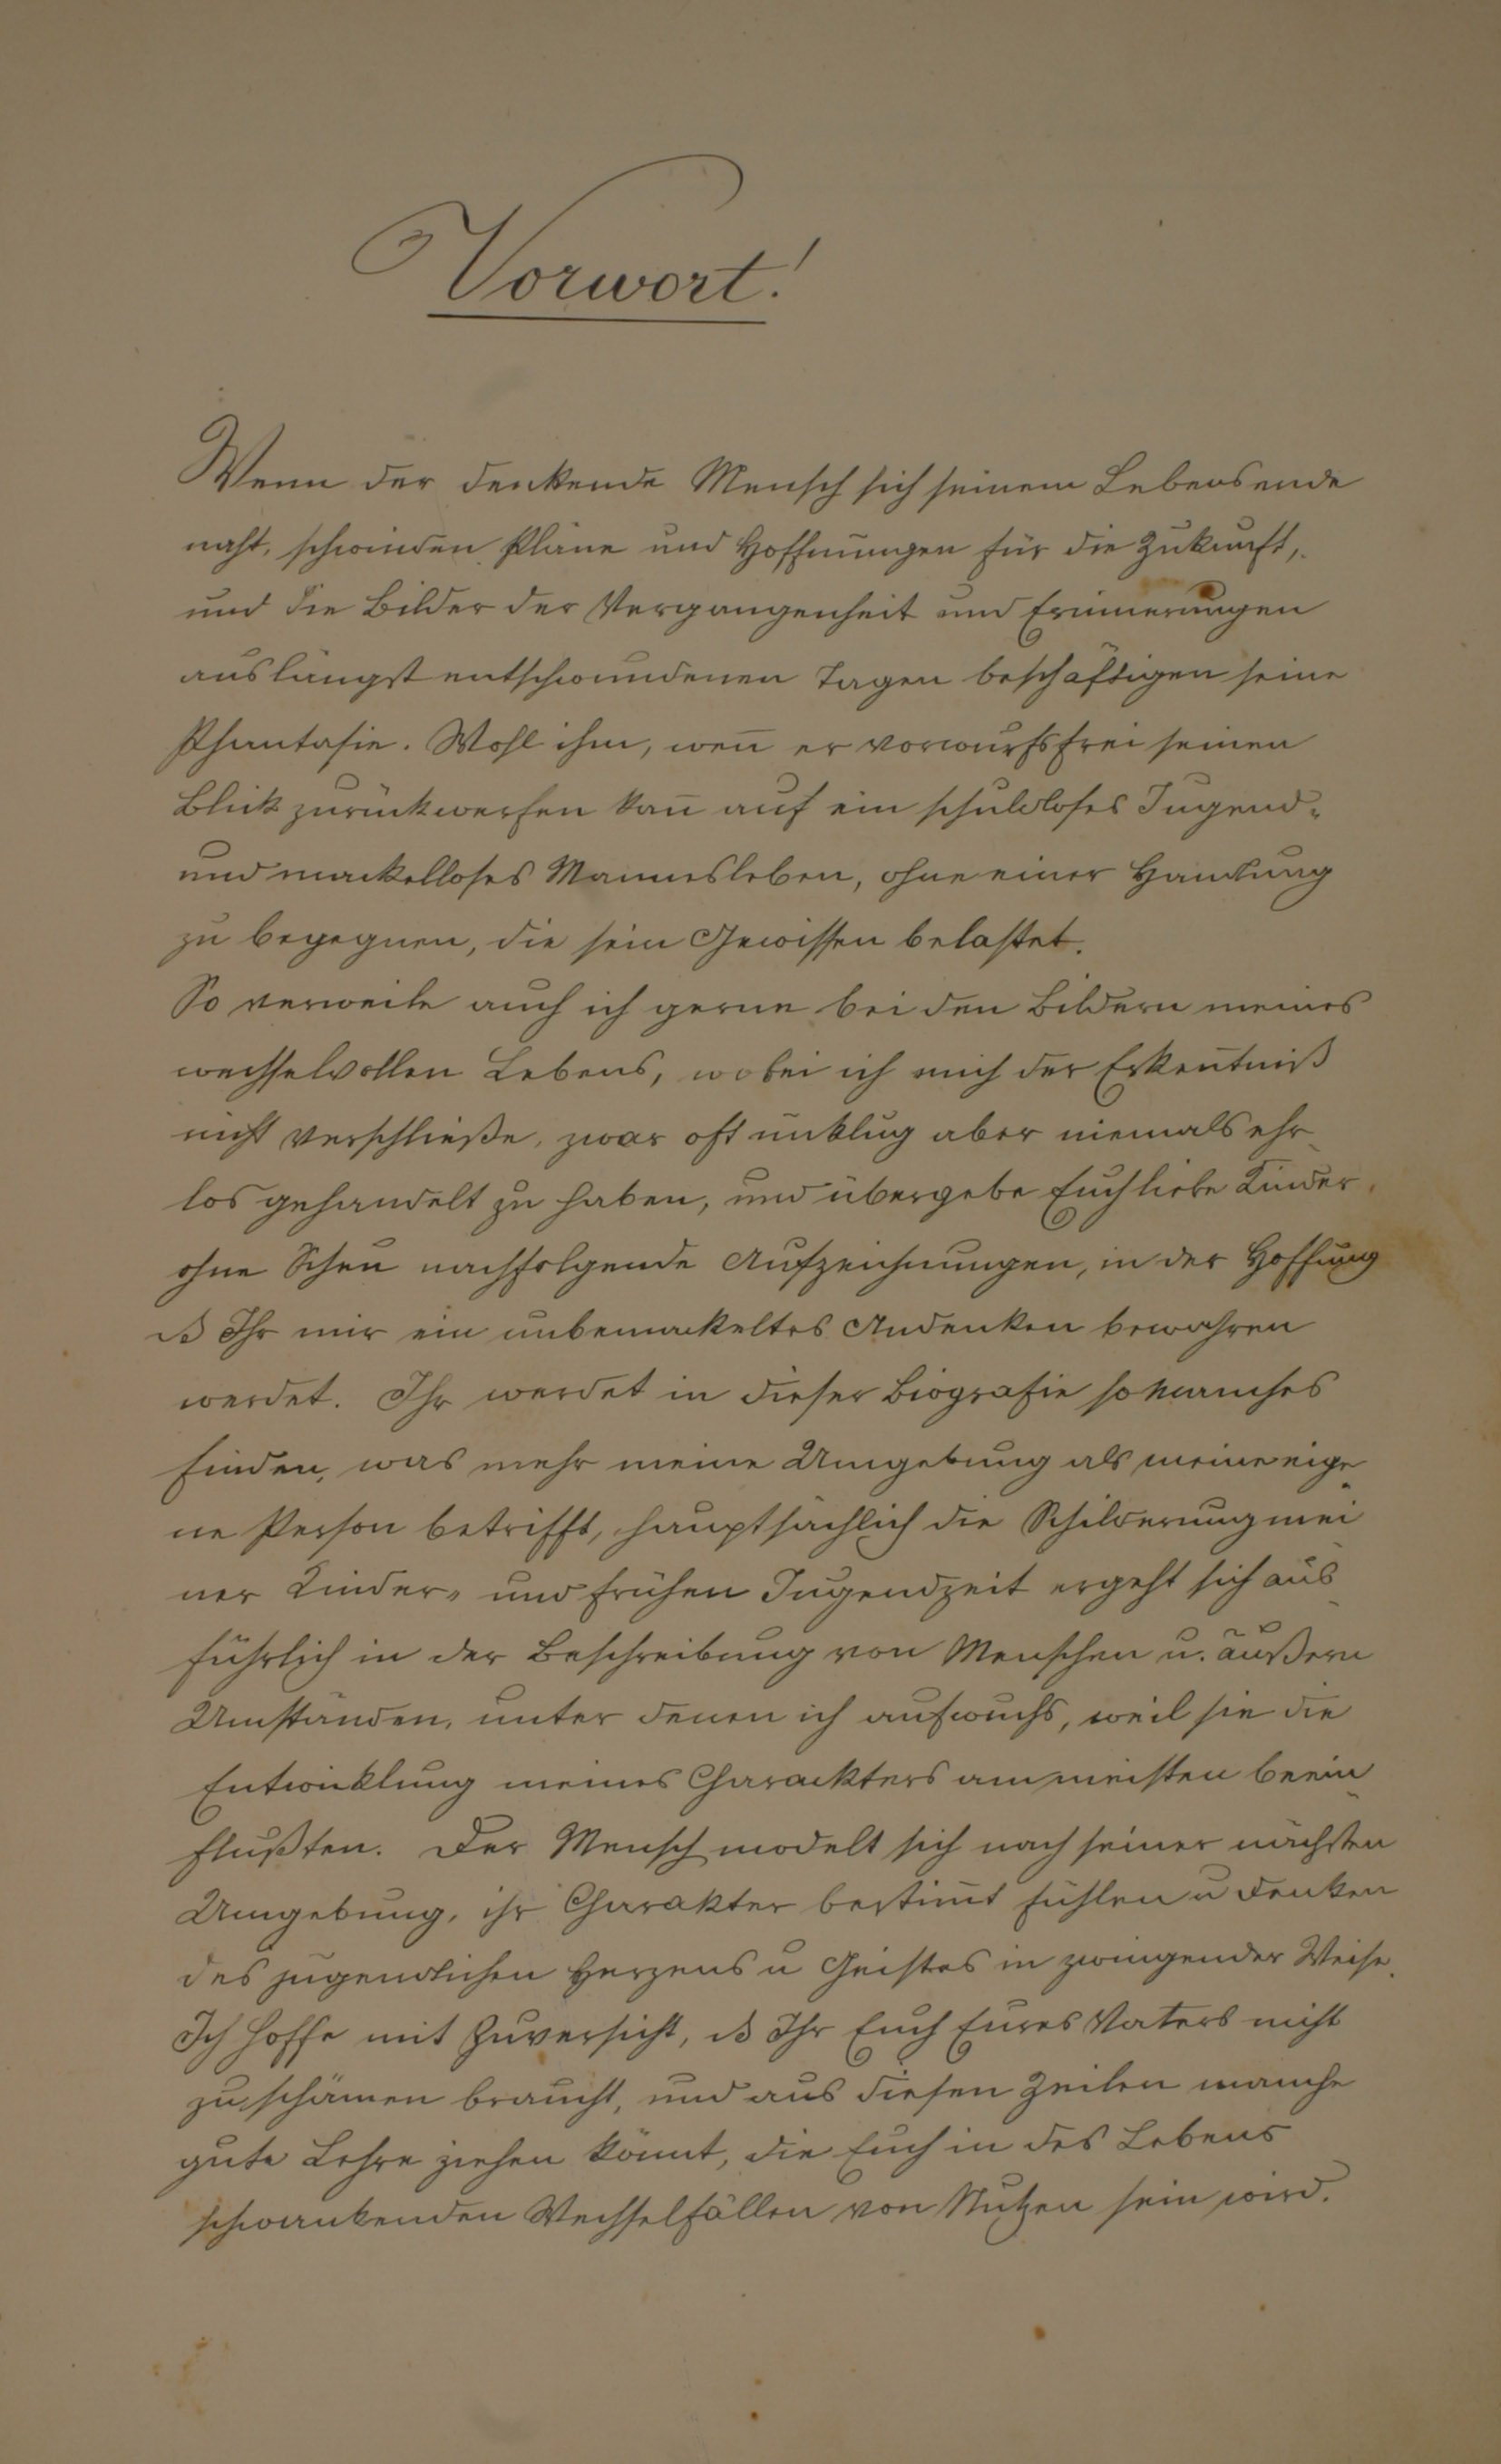 Vorwort!
Wenn der denkende Mensch sich seinem Lebensende
naht, schwinden Pläne und Hoffnungen für die Zukunft,
und die Bilder der Vergangenheit und Erinnerungen
aus längst entschwundenen Tagen beschäftigen seine
Phantasie. Wohl ihm, weñ er vorwurfsfrei seinen
Blick zurückwerfen kañ auf ein schuldloses Jugend-
und mackelloses Mannesleben, ohne einer Handlung
zu begegnen, die sein Gewissen belastet.
So verweile auch ich gerne bei den Bildern meines
wechselvollen Lebens, wobei ich mich der Erkeñtniß
nicht verschließe, zwar oft unklug aber niemals ehr
los gehandelt zu haben, und übergebe Euch liebe Kinder,
ohne Scheu nachfolgende Aufzeichnungen, in der Hoffnung
ds Ihr mir ein unbemackeltes Andenken bewahren
werdet. Ihr werdet in dieser Biografie so manches
finden, was mehr meine Umgebung als meine eige
ne Person betrifft, hauptsächlich die Schilderung mei
ner Kinder- und frühen Jugendzeit ergeht sich aus
führlich in der Beschreibung von Menschen u. äußern
Umständen, unter denen ich aufwuchs, weil sie die
Entwicklung meines Charackters am meisten beein
flußten. Der Mensch modelt sich nach seiner nächsten
Umgebung, ihr Charakter bestim̄t fühlen u denken
des jugendlichen Herzens u Geistes in zwingender Weise.
Ich hoffe mit Zuversicht, ds Ihr Euch Eures Vaters nicht
zu schämen braucht, und aus diesen Zeilen manche
gute Lehre ziehen könnt, die Euch in des Lebens
schwankenden Wechselfällen von Nutzen sein wird.